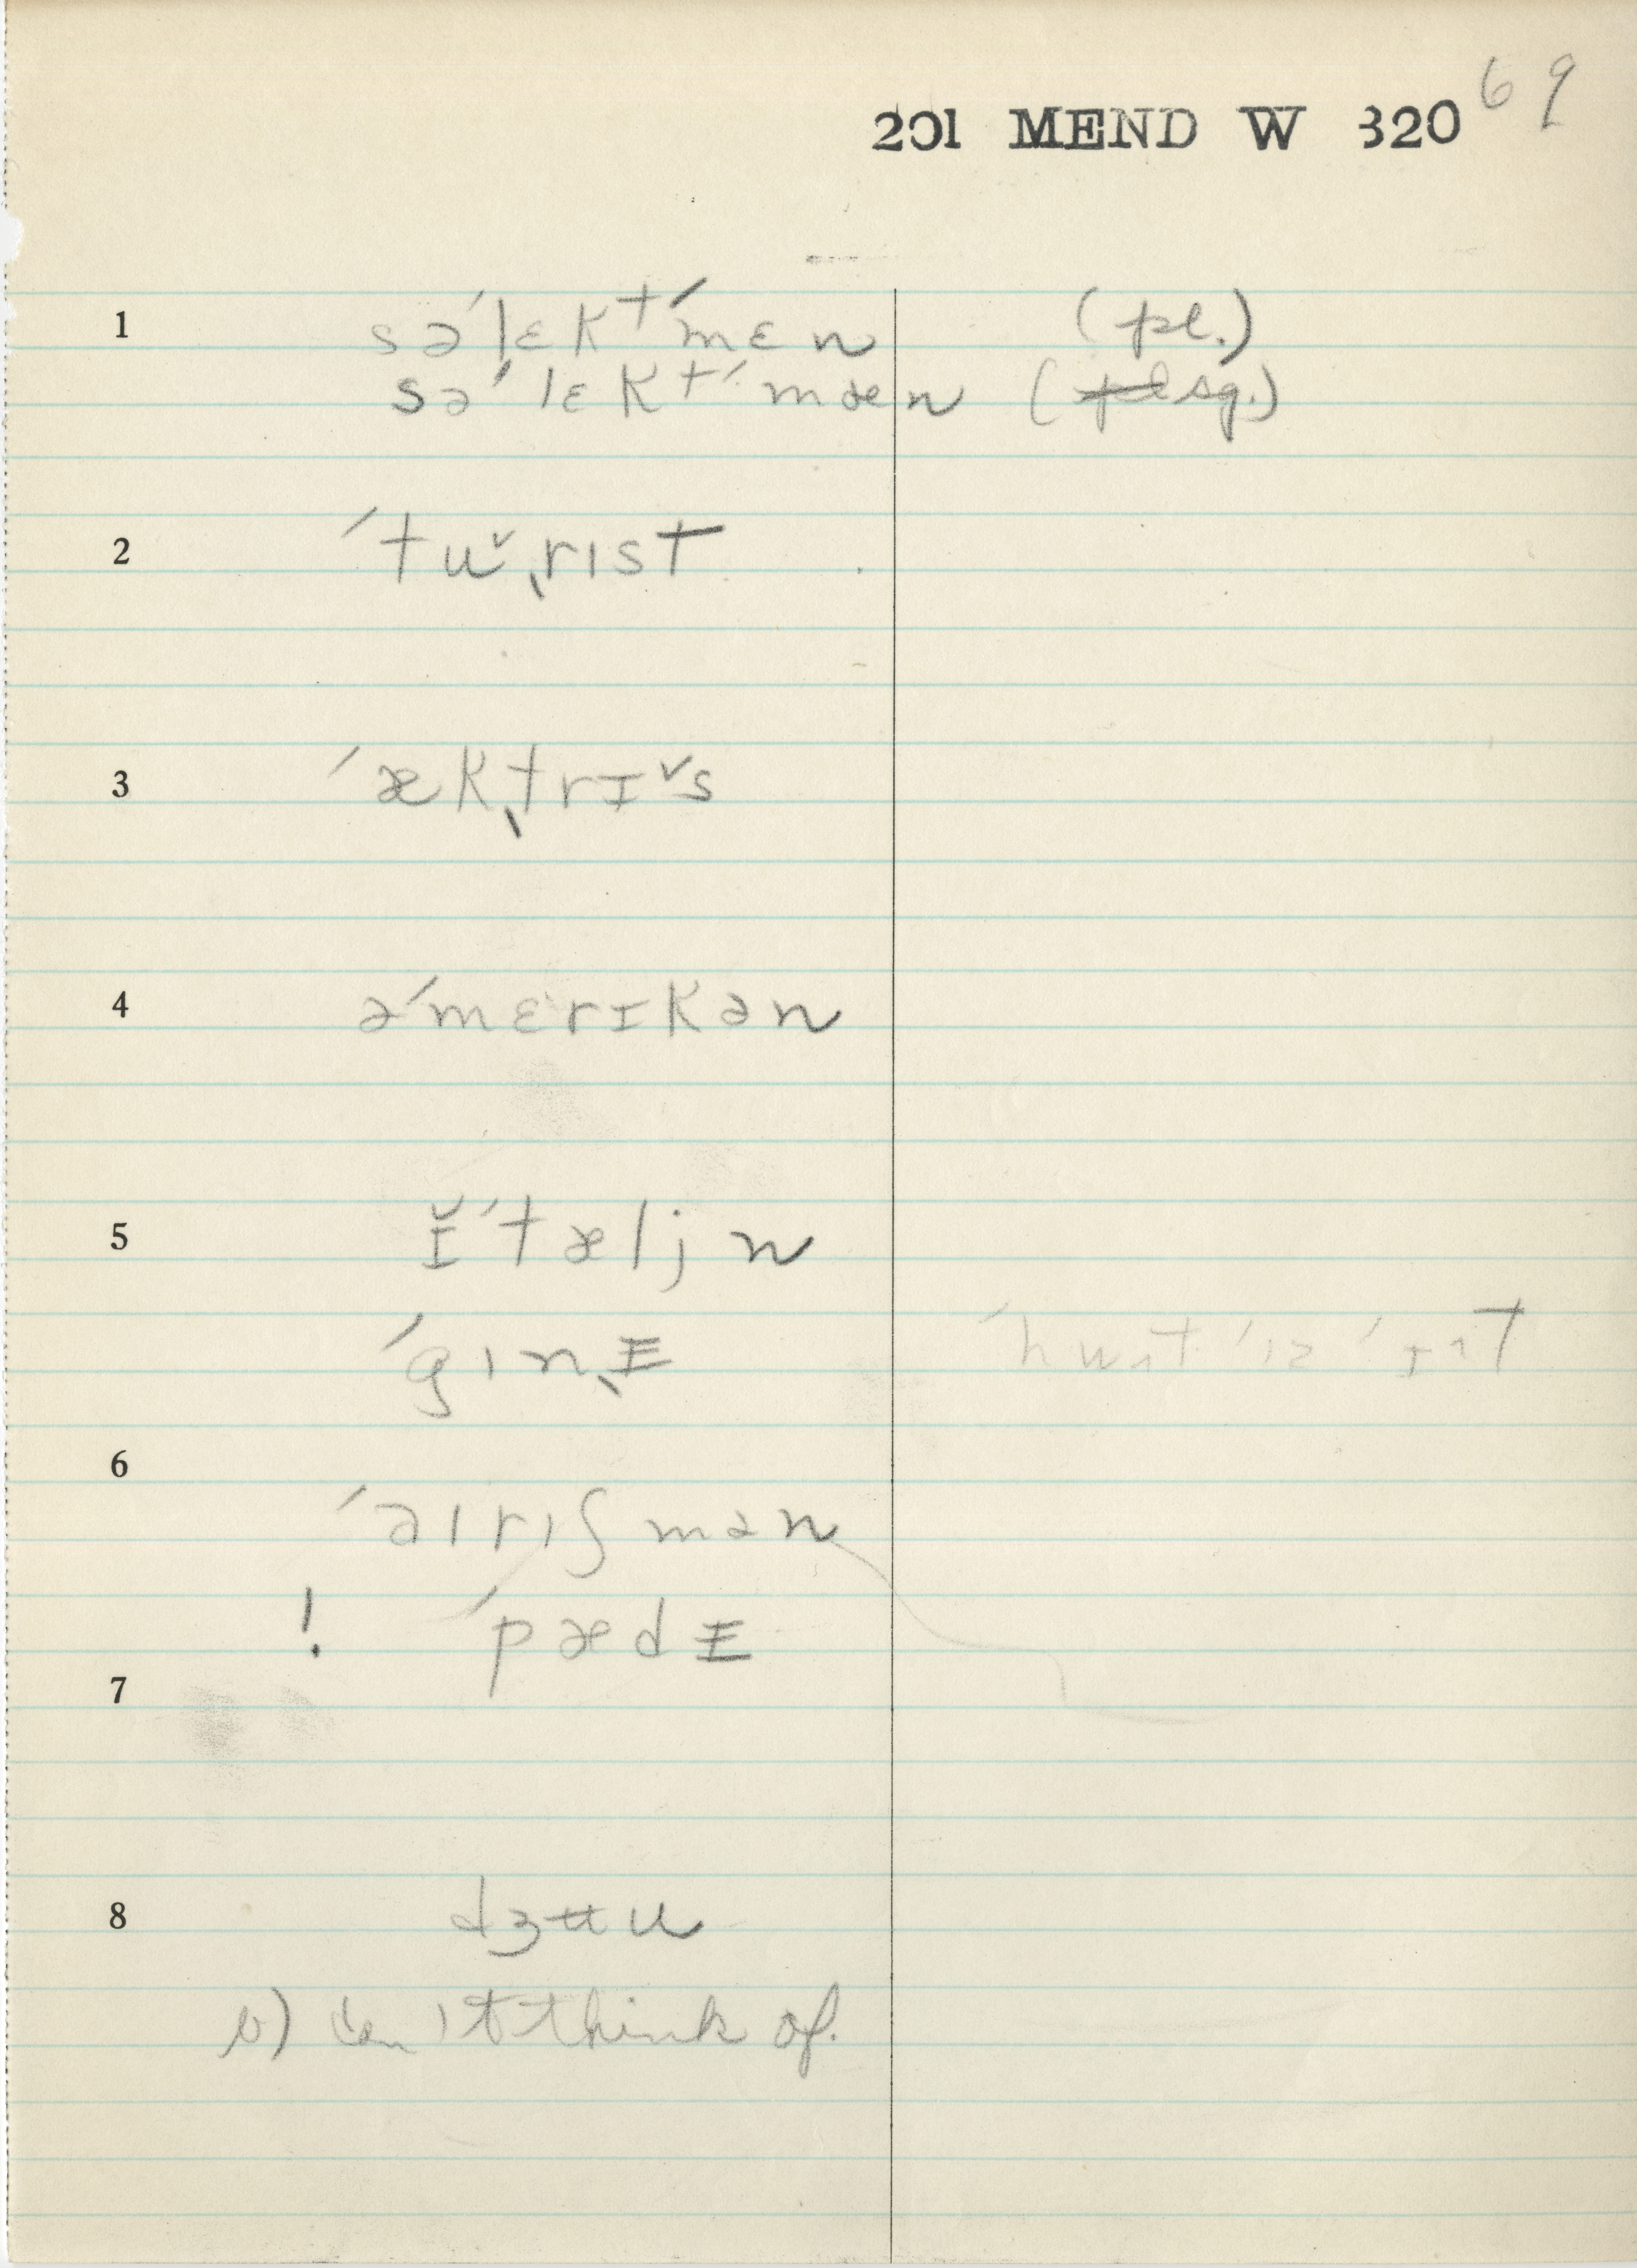 201 MEND W 320 69
1 səˈlɛktˈmɛn (pl.)
səˈlɛktˈmæn (p̶l̶ sg.)
2 ˈtu˅ˌrɪst
3 ˈækˌtrɪ˅s
4 əˈmɛrɪkən
5 ɪ̆ˈtæljn
ˈgɪnˌɪ
6
ˈaɪrɪʃmən
! ˈpædɪ
7
8 dʒʉu
b) can't think of.